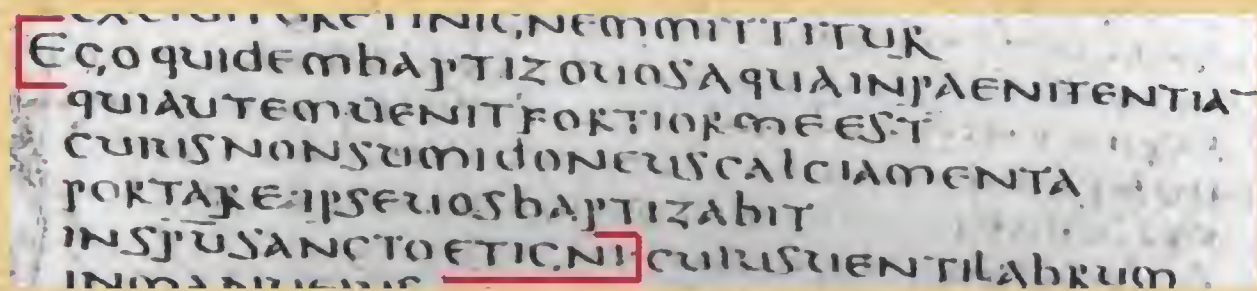 EXCIDITURETINIGNEMMITTITUR
EGOQUIDEMBAPTIZOUOSAQUAINPAENITENTIA¯
QUIAUTEMUENITFORTIORMEEST
CUIUSNONSUMIDONEUSCALCIAMENTA
PORTARE·IPSEUOSBAPTIZABIT
INSPŪSANCTOETIGNI·CUIUSUENTILABRUM
INMANUEIUS